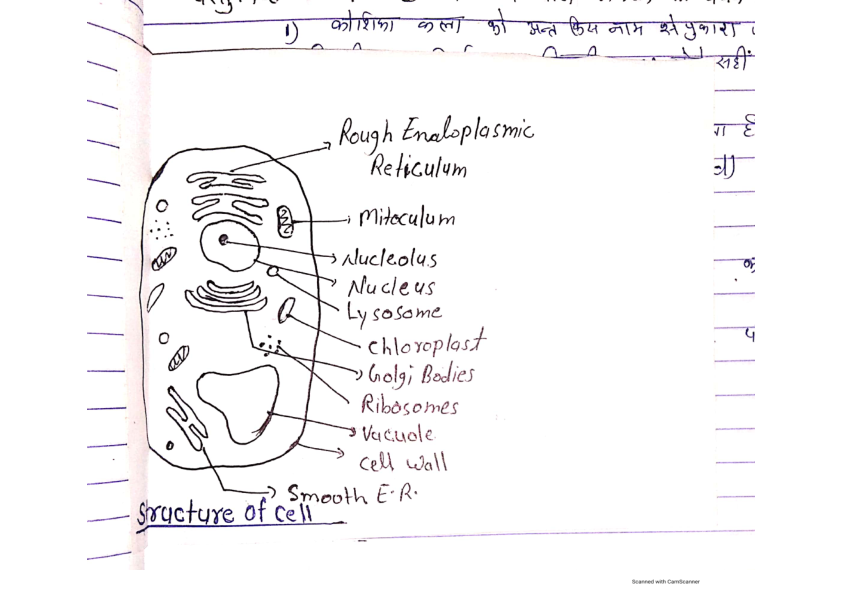 1) कोशिका कला को अन्त किस नाम से पुकारा
सहीं
Rough Endoplasmic
Reticulum
Mitoculum
Nucleolus
Nucleus
Lysosome
Chloroplast
Golgi Bodies
Ribosomes
Vacuole
Cell Wall
Smooth E.R.
Structure of Cell
Scanned with CamScanner